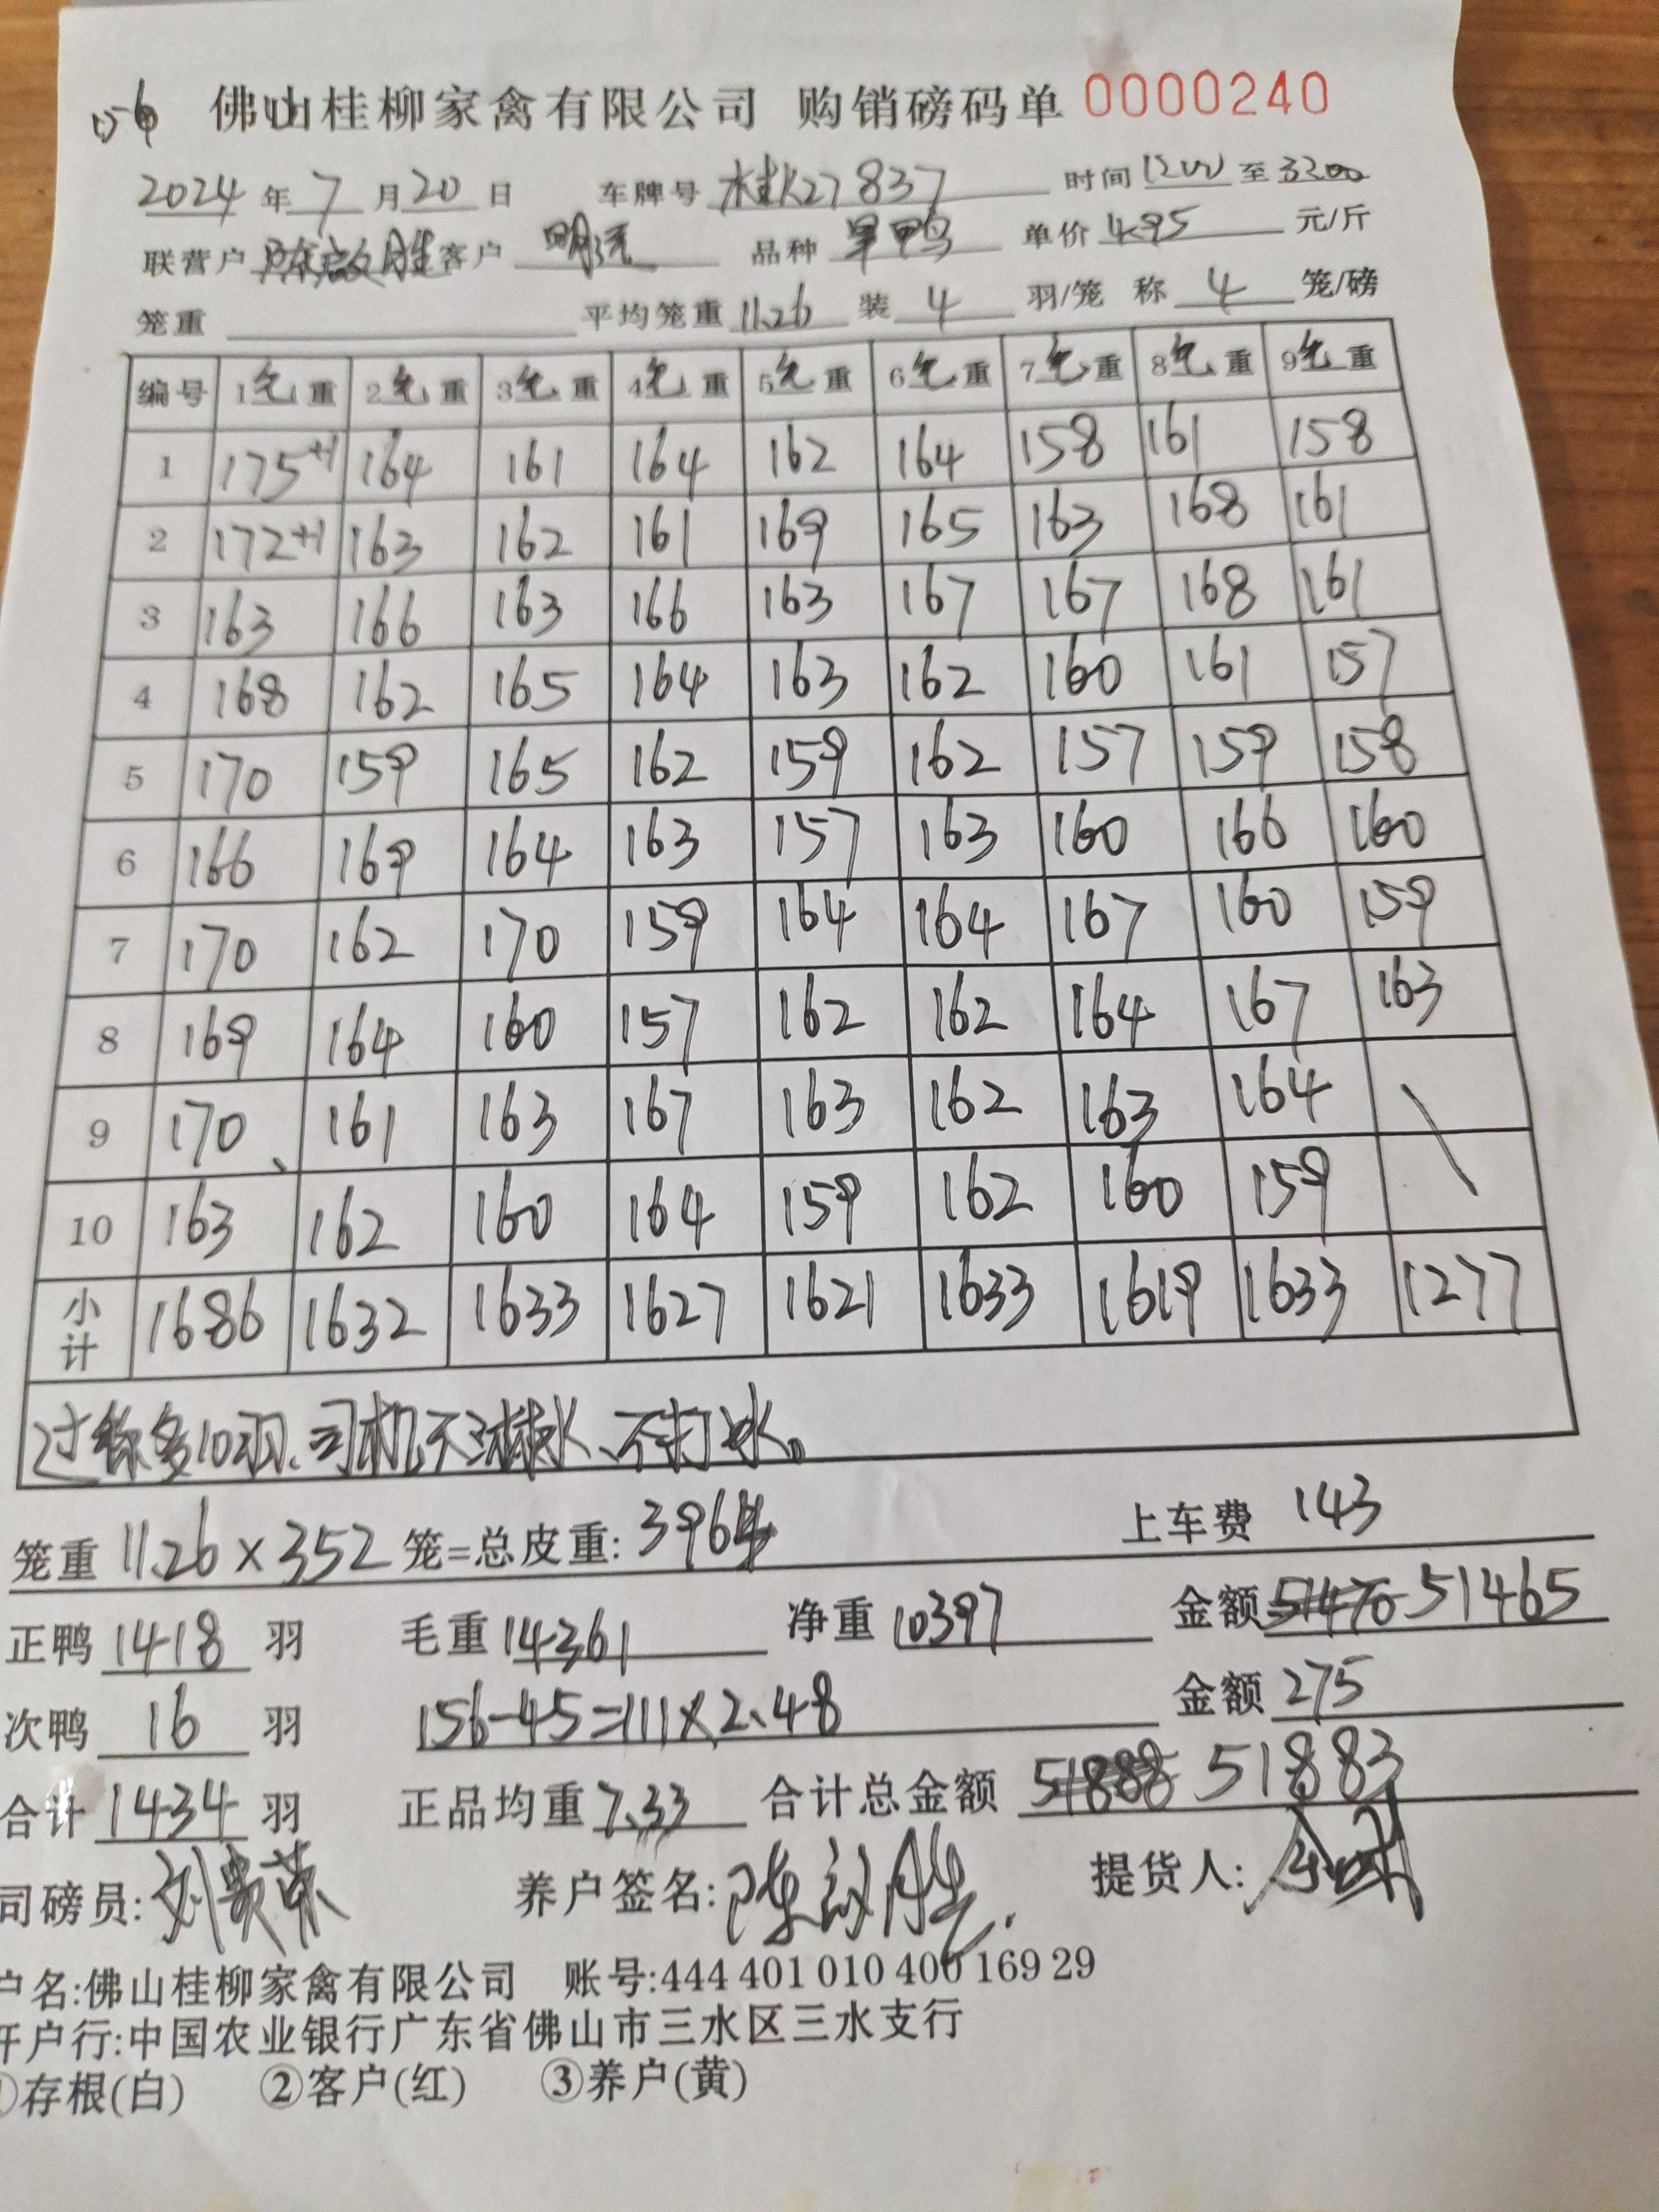 佛山桂柳家禽有限公司 购销磅码单 0000240
2024 年 7 月 20 日 车牌号 27837 时间 至
联营户 客户 明记 品种 旱鸭 单价 4.95 元/斤
笼重 平均笼重 11.26 装 4 羽/笼 称 4 笼/磅
编号 1毛重 2毛重 3毛重 4毛重 5毛重 6毛重 7毛重 8毛重 9毛重
1 175+1 164 161 164 162 164 158 161 158
2 172+1 163 162 161 169 165 163 168 161
3 163 166 163 166 163 167 167 168 161
4 168 162 165 164 163 162 160 161 157
5 170 159 165 162 159 162 157 159 158
6 166 169 164 163 157 163 160 166 160
7 170 162 170 159 164 164 167 160 159
8 169 164 160 157 162 162 164 167 163
9 170 161 163 167 163 162 163 164
10 163 162 160 164 159 162 160 159
小计 1686 1632 1633 1627 1621 1633 1619 1633 1277
过称多10羽、司机不淋水、不打冰。
笼重 11.26×352 笼=总皮重: 3964 上车费 143
正鸭 1418 羽 毛重 14361 净重 10397 金额 51470 51465
次鸭 16 羽 156-45=111×2.48 金额 275
合计 1434 羽 正品均重 7.33 合计总金额 51888 51883
司磅员: 刘贵荣 养户签名: 提货人:
户名:佛山桂柳家禽有限公司 账号:444 401 010 400 169 29
开户行:中国农业银行广东省佛山市三水区三水支行
①存根(白) ②客户(红) ③养户(黄)